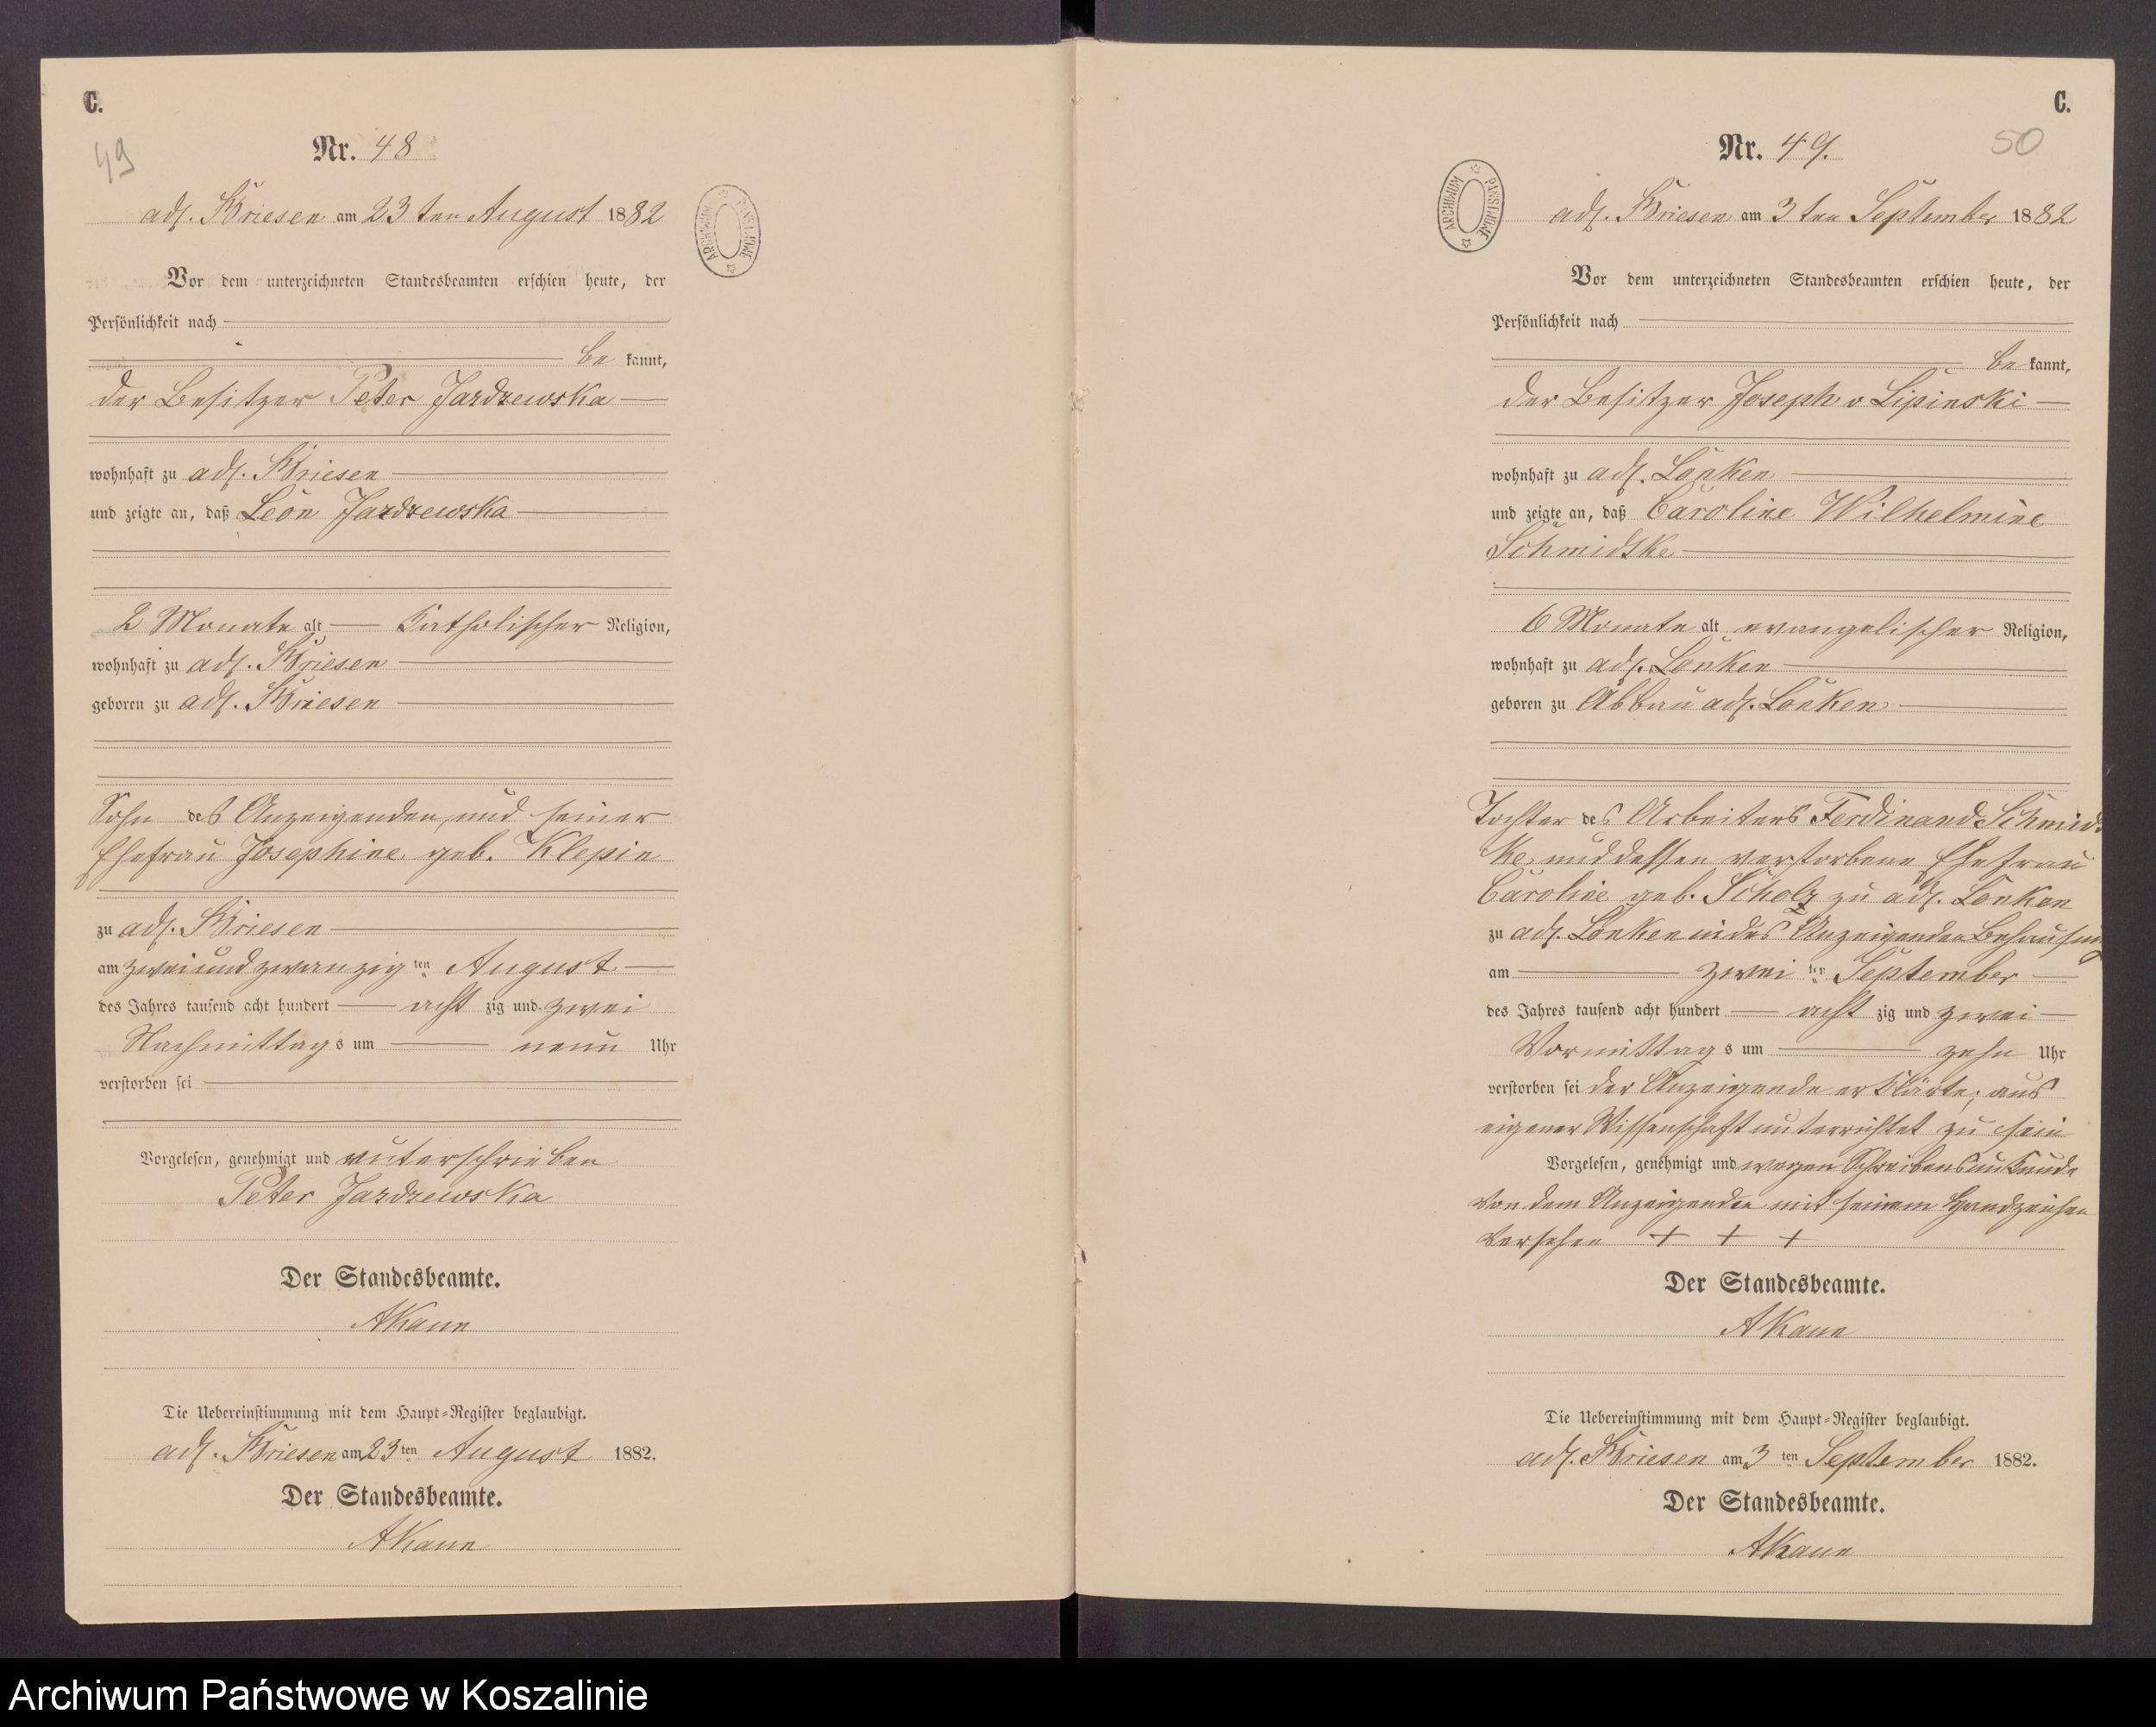 C.
49
Nr. 48
adl. Briesen am 23ten August 1882
Vor dem unterzeichneten Standesbeamten erschien heute, der
Persönlichkeit nach
be kannt,
der Besitzer Peter Jazdzewska
wohnhaft zu adl. Briesen
und zeigte an, daß Leon Jazdzewska
2 Monate alt katholischer Religion,
wohnhaft zu adl. Briesen
geboren zu adl. Briesen
Sohn des Anzeigenden, und seiner
Ehefrau Josephine geb. Klepin
zu adl. Briesen
am zwei und zwanzig ten August
des Jahres tausend acht hundert acht zig und zwei
Nachmittag s um neun Uhr
verstorben sei
Vorgelesen, genehmigt und unterschrieben
Peter Jazdzewska
Der Standesbeamte.
AKaun
Die Uebereinstimmung mit dem Haupt-Register beglaubigt.
adl. Briesen am 23 ten August 1882.
Der Standesbeamte.
AKaun
ARCHIWUM PAŃSTWOWE
C.
50
Nr. 49.
ARCHIWUM PAŃSTWOWE
adl. Briesen am 3ten September 1882
Vor dem unterzeichneten Standesbeamten erschien heute, der
Persönlichkeit nach
be kannt,
der Besitzer Joseph v Lipinski
wohnhaft zu adl. Lonken
und zeigte an, daß Caroline Wilhelmine
Schmidtke
6 Monate alt evangelischer Religion,
wohnhaft zu adl. Lonken
geboren zu Abbau adl. Lonken
Tochter des Arbeiters Ferdinand Schmidt
ke und dessen verstorbene Ehefrau
Caroline geb. Scholz zu adl. Lonken
zu adl. Lonken in des Anzeigenden Behausung
am zwei ten September
des Jahres tausend acht hundert acht zig und zwei
Vormittag s um zehn Uhr
verstorben sei der Anzeigende erklärte, aus
eigener Wissenschaft unterrichtet zu sein
Vorgelesen, genehmigt und wegen Schreibensunkunde
von dem Anzeigenden mit seinem Handzeichen
versehen + + +
Der Standesbeamte.
AKaun
Die Uebereinstimmung mit dem Haupt-Register beglaubigt.
adl. Briesen am 3 ten September 1882.
Der Standesbeamte.
AKaun
Archiwum Państwowe w Koszalinie